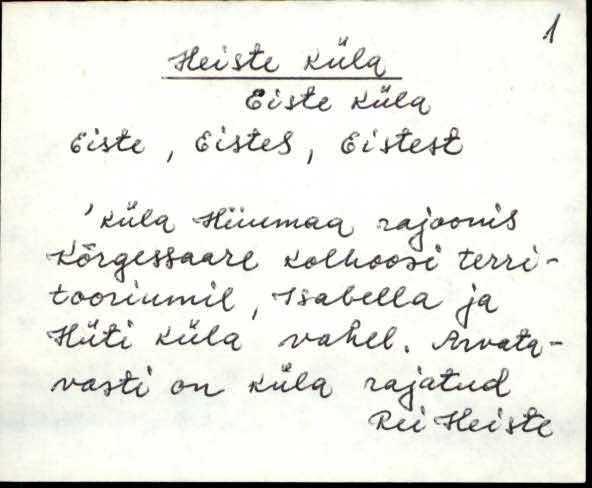 1
Heiste küla
Eiste küla
Eiste, Eistes, Eistest
'küla Hiiumaa rajoonis
Kõrgessaare kolhoosi terri-
tooriumil, Isabella ja
Hüti küla vahel. Arvata-
vasti on küla rajatud
Rei Heiste